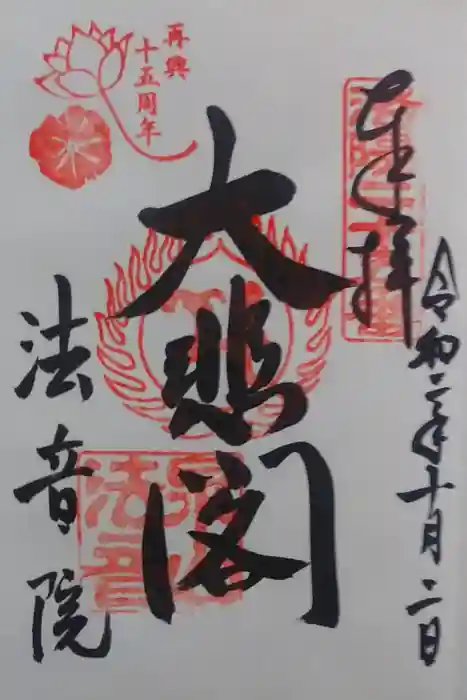 奉拝
令和二年十月二日
再興
十五周年
大悲閣
法音院